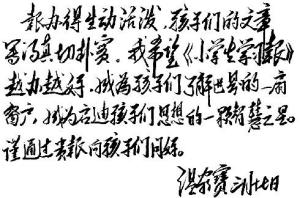 报办得生动活泼，孩子们的文章
写得真切朴实。我希望《小学生学习报》
越办越好，成为孩子们了解世界的一扇
窗户，成为启迪孩子们思想的一颗智慧之星。
谨通过贵报向孩子们问好。
温家宝